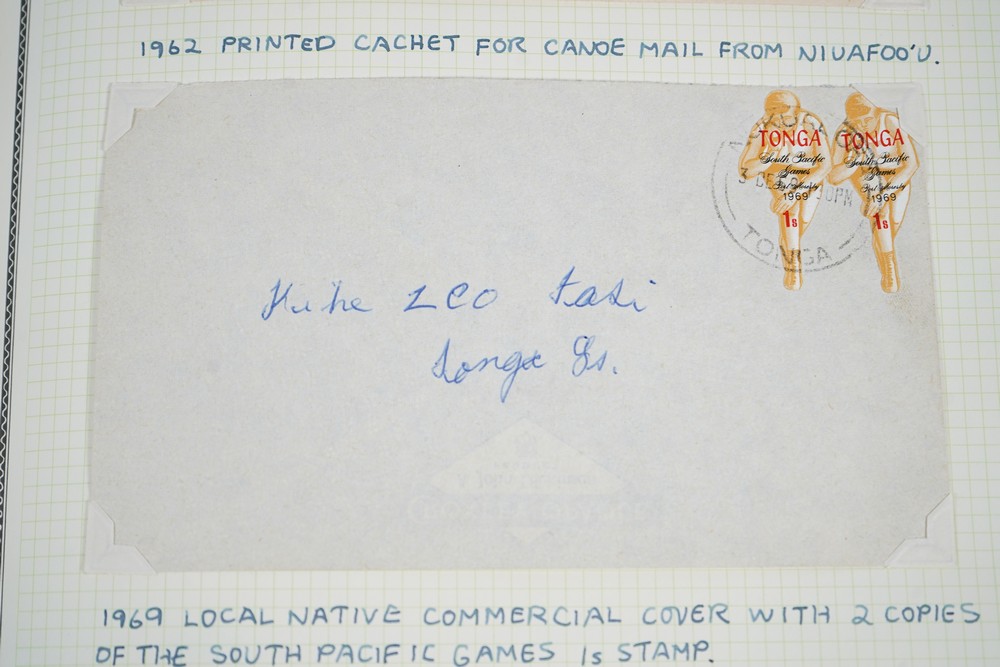 1962 PRINTED CACHET FOR CANOE MAIL FROM NIUAFOO'U.
TONGA
South Pacific
Games
Port Moresby
1969
1s
TONGA
South Pacific
Games
Port Moresby
1969
1s
3 DEC
30PM
TONGA
Tonga Is.
1969 LOCAL NATIVE COMMERCIAL COVER WITH 2 COPIES
OF THE SOUTH PACIFIC GAMES 1s STAMP.